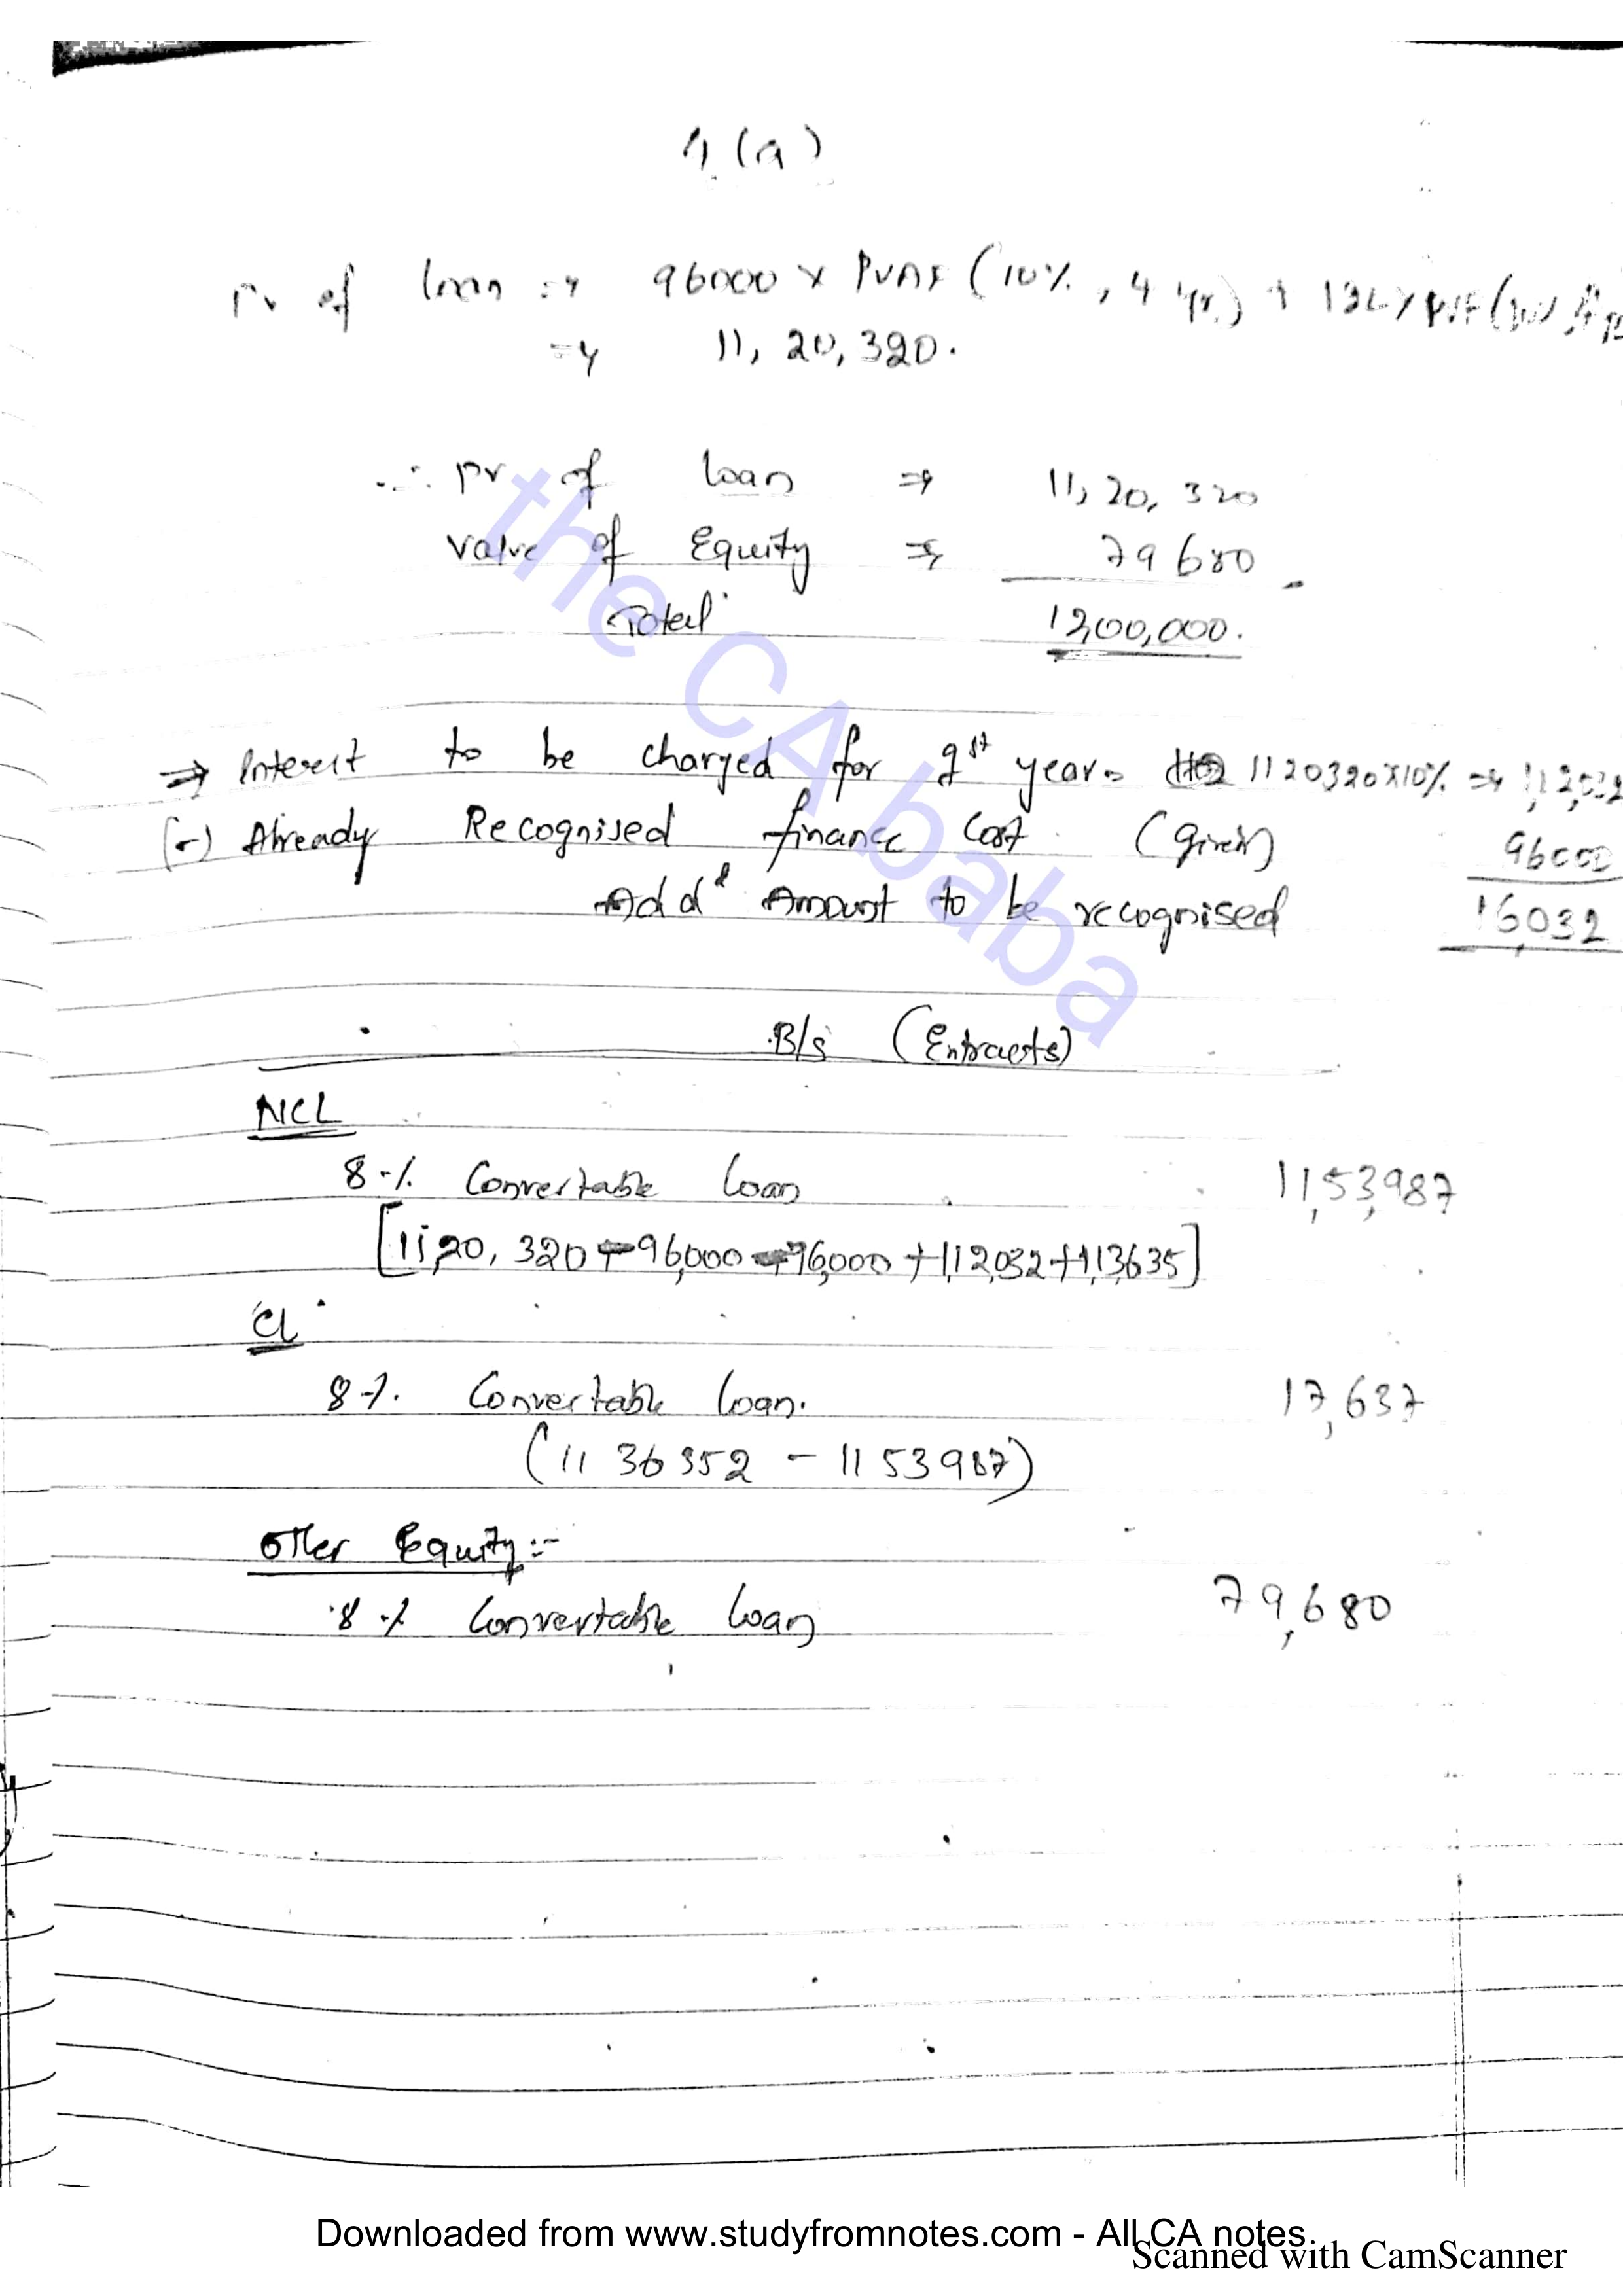 4 (a)
Pv of loan => 96000 x PVAF (10%, 4 yr) + 12L x PVF
=> 11, 20, 320.
∴ Pv of loan => 11, 20, 320
Value of Equity => 79680
Total 1200,000.
=> Interest to be charged for 1st year = 1120320x10% => 1,12,032
(-) Already Recognised finance Cost (given) 96000
Addl Amount to be recognised 16032
B/s (Extracts)
NCL
8% Convertable loan 11,53,987
[11,20,320 - 96,000 - 96,000 + 1,12,032 + 1,13,635]
CL
8%. Convertable loan. 17,637
(1136352 - 1153987)
Other Equity:-
8% Convertable loan 79,680
the CA baba
Downloaded from www.studyfromnotes.com - All CA notes
Scanned with CamScanner